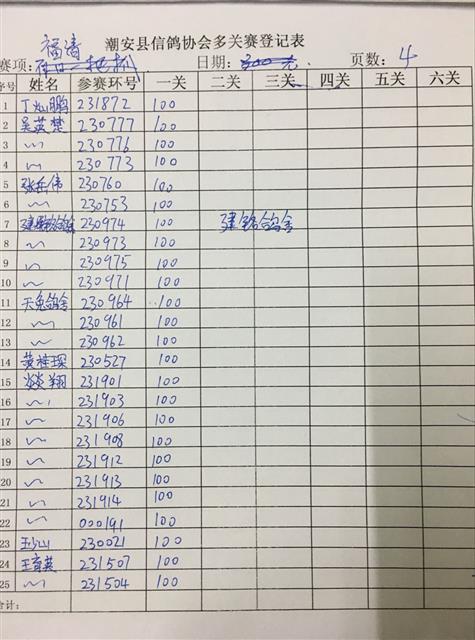 潮安县信鸽协会多关赛登记表
福清
赛项: 日期: 页数: 4
序号 姓名 参赛环号 一关 二关 三关 四关 五关 六关
1 丁灿鹏 231872 100
2 吴英楚 230777 100
3 〃 230776 100
4 〃 230773 100
5 张岳伟 230760 100
6 〃 230753 100
7 230974 100 建銘鸽舍
8 〃 230973 100
9 〃 230975 100
10 〃 230971 100
11 天兔鸽舍 230964 100
12 〃 230961 100
13 〃 230962 100
14 黄桂琛 230527 100
15 翔 231901 100
16 〃 231903 100
17 〃 231906 100
18 〃 231908 100
19 〃 231912 100
20 〃 231913 100
21 〃 231914 100
22 〃 000191 100
23 王少山 230021 100
24 王育英 231507 100
25 〃 231504 100
合计: